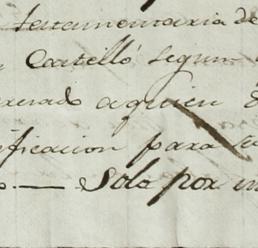 testamentaria de
Castelló segun
aquien
ificacion para su
Sola por